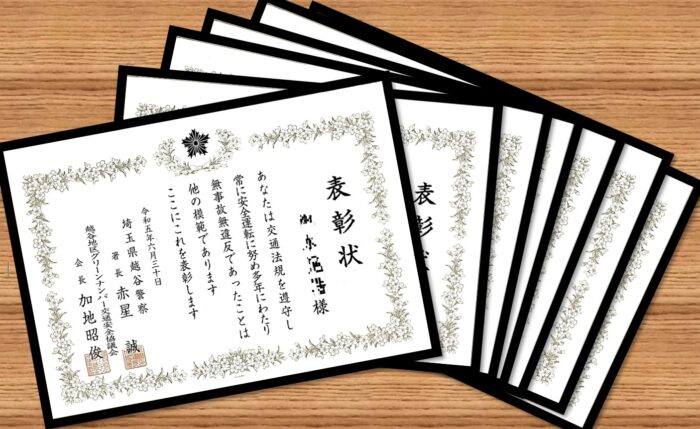 表彰状
様
あなたは交通法規を遵守し
常に安全運転に努め多年にわたり
無事故無違反であったことは
他の模範であります
ここにこれを表彰します
令和五年六月三十日
埼玉県越谷警察
署長 赤星 誠
越谷地区グリーンナンバー交通安全協議会
会長 加地昭俊
表彰状